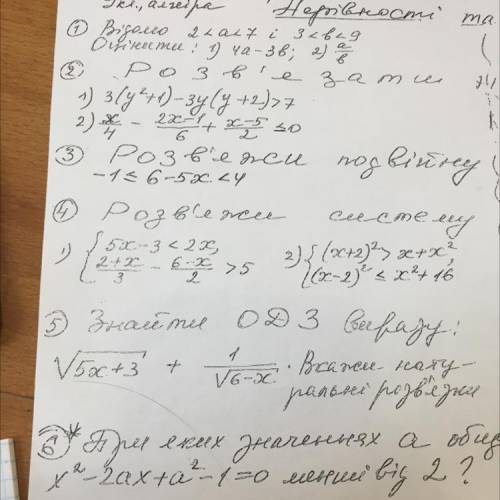 9кл., алгебра Нерівності та
① Відомо 2<a<7 і 3<b<9
Оцінити: 1) 4a-3b; 2) a/b
② Розв'язати
1) 3(y²+1)-3y(y+2)>7
2) x/4 - (2x-1)/6 + (x-5)/2 ≤0
③ Розв'яжи подвійну
-1≤6-5x<4
④ Розв'яжи систему
1) { 5x-3<2x, (2+x)/3 - (6-x)/2 >5
2) { (x+2)²>x+x², (x-2)² ≤ x²+16
⑤ Знайти ОДЗ виразу:
√(5x+3) + 1/√(6-x). Вкажи нату-
ральні розв'язки
⑥* При яких значеннях a обид
x²-2ax+a²-1=0 менші від 2?